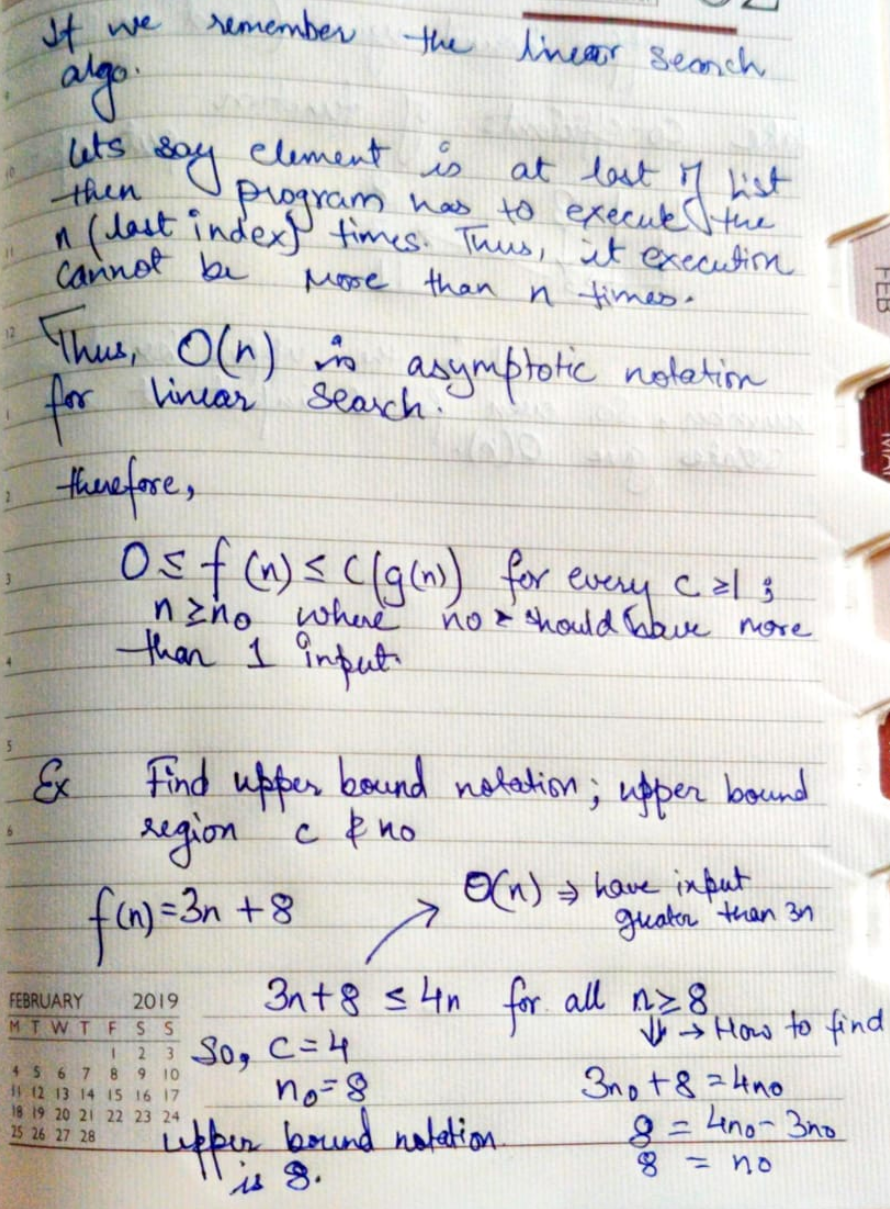 If we remember the linear search
algo.
lets say element is at last of list
then program has to execute the
n (last index) times. Thus, it execution
cannot be more than n times.
Thus, O(n) is asymptotic notation
for linear search.
therefore,
0 ≤ f(n) ≤ c(g(n)) for every c ≥ 1 ;
n ≥ n0 where n0 should have more
than 1 input.
Ex Find upper bound notation; upper bound
region c & n0
f(n) = 3n + 8
O(n) ⇒ have input
greater than 3n
3n + 8 ≤ 4n for all n ≥ 8
⇓ → How to find
So, c = 4
n0 = 8
3n0 + 8 = 4n0
8 = 4n0 - 3n0
8 = n0
upper bound notation
is 8.
FEBRUARY 2019
M T W T F S S
1 2 3
4 5 6 7 8 9 10
11 12 13 14 15 16 17
18 19 20 21 22 23 24
25 26 27 28
10
11
12
1
2
3
4
5
6
FEB